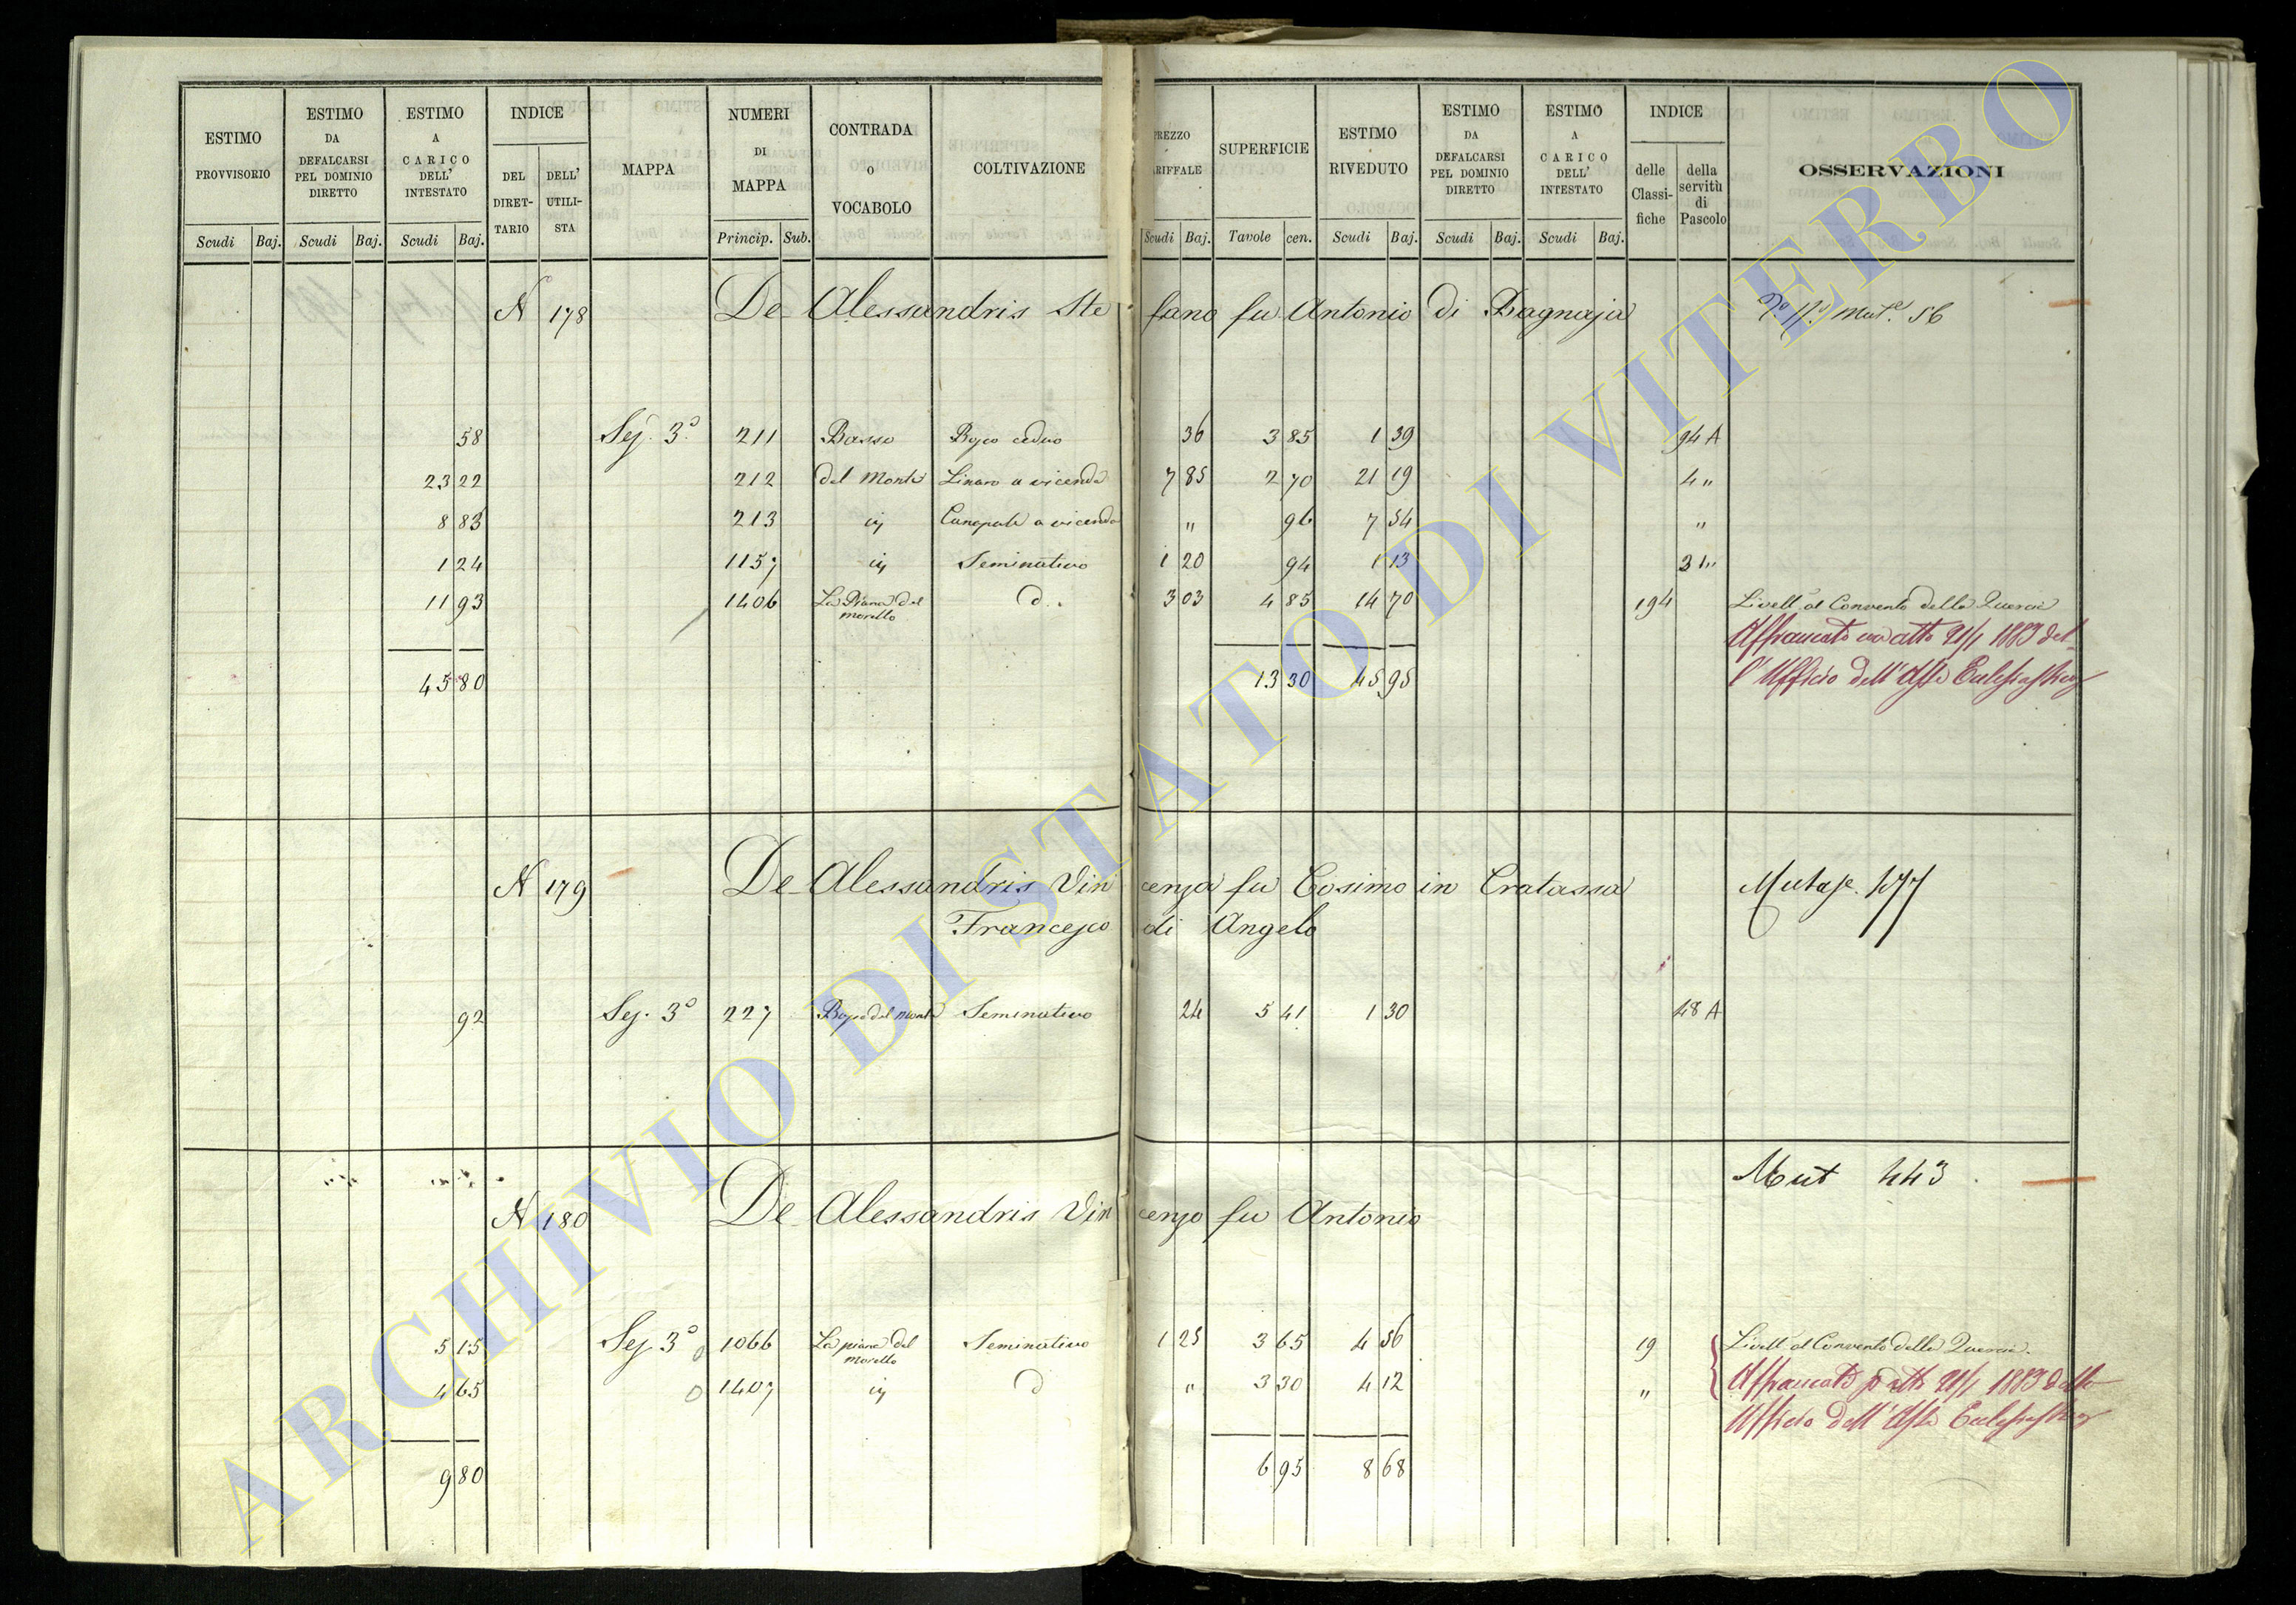 ESTIMO PROVVISORIO
ESTIMO DA DEFALCARSI PEL DOMINIO DIRETTO
ESTIMO A CARICO DELL' INTESTATO
INDICE
DEL DIRET-TARIO
DELL' UTILI-STA
MAPPA
NUMERI DI MAPPA
CONTRADA O VOCABOLO
COLTIVAZIONE
PREZZO TARIFFALE
SUPERFICIE
ESTIMO RIVEDUTO
ESTIMO DA DEFALCARSI PEL DOMINIO DIRETTO
ESTIMO A CARICO DELL' INTESTATO
INDICE
delle Classi-fiche
della servitù di Pascolo
OSSERVAZIONI
Scudi Baj. Scudi Baj. Scudi Baj. Princip. Sub. Scudi Baj. Tavole cen. Scudi Baj. Scudi Baj. Scudi Baj.
N 178 De Alessandris Stefano fu Antonio di Bagnaja Mut.e 56
58 Sez. 3a 211 Basso Bosco ceduo 36 3 85 1 39 94 A
23 22 212 del Monte Linaro a vicenda 7 85 2 70 21 19 4 "
8 83 213 ivi Canapale a vicenda " 96 7 54 "
1 24 1157 ivi Seminativo 1 20 94 1 13 31 "
11 93 1406 La Piana del Morello d. 3 03 4 85 14 70 194 Livell. al Convento della Quercia
Affrancato con atto 21/1 1883 del
l'Ufficio dell'Asse Ecclesiastico
45 80 13 30 45 95
N 179 De Alessandris Vincenza fu Cosimo in Cratassa Mutaz. 177
Francesco di Angelo
92 Sez. 3a 227 Bosco del Monte Seminativo 24 5 41 1 30 48 A
Mut 443
N 180 De Alessandris Vincenzo fu Antonio
5 15 Sez. 3a 1066 La piana del Morello Seminativo 1 25 3 65 4 56 19 Livell. al Convento della Quercia.
4 65 1407 ivi d " 3 30 4 12 " Affrancato p atto 21/1 1883 dello
Ufficio dell'Asse Ecclesiastico
9 80 6 95 8 68
ARCHIVIO DI STATO DI VITERBO